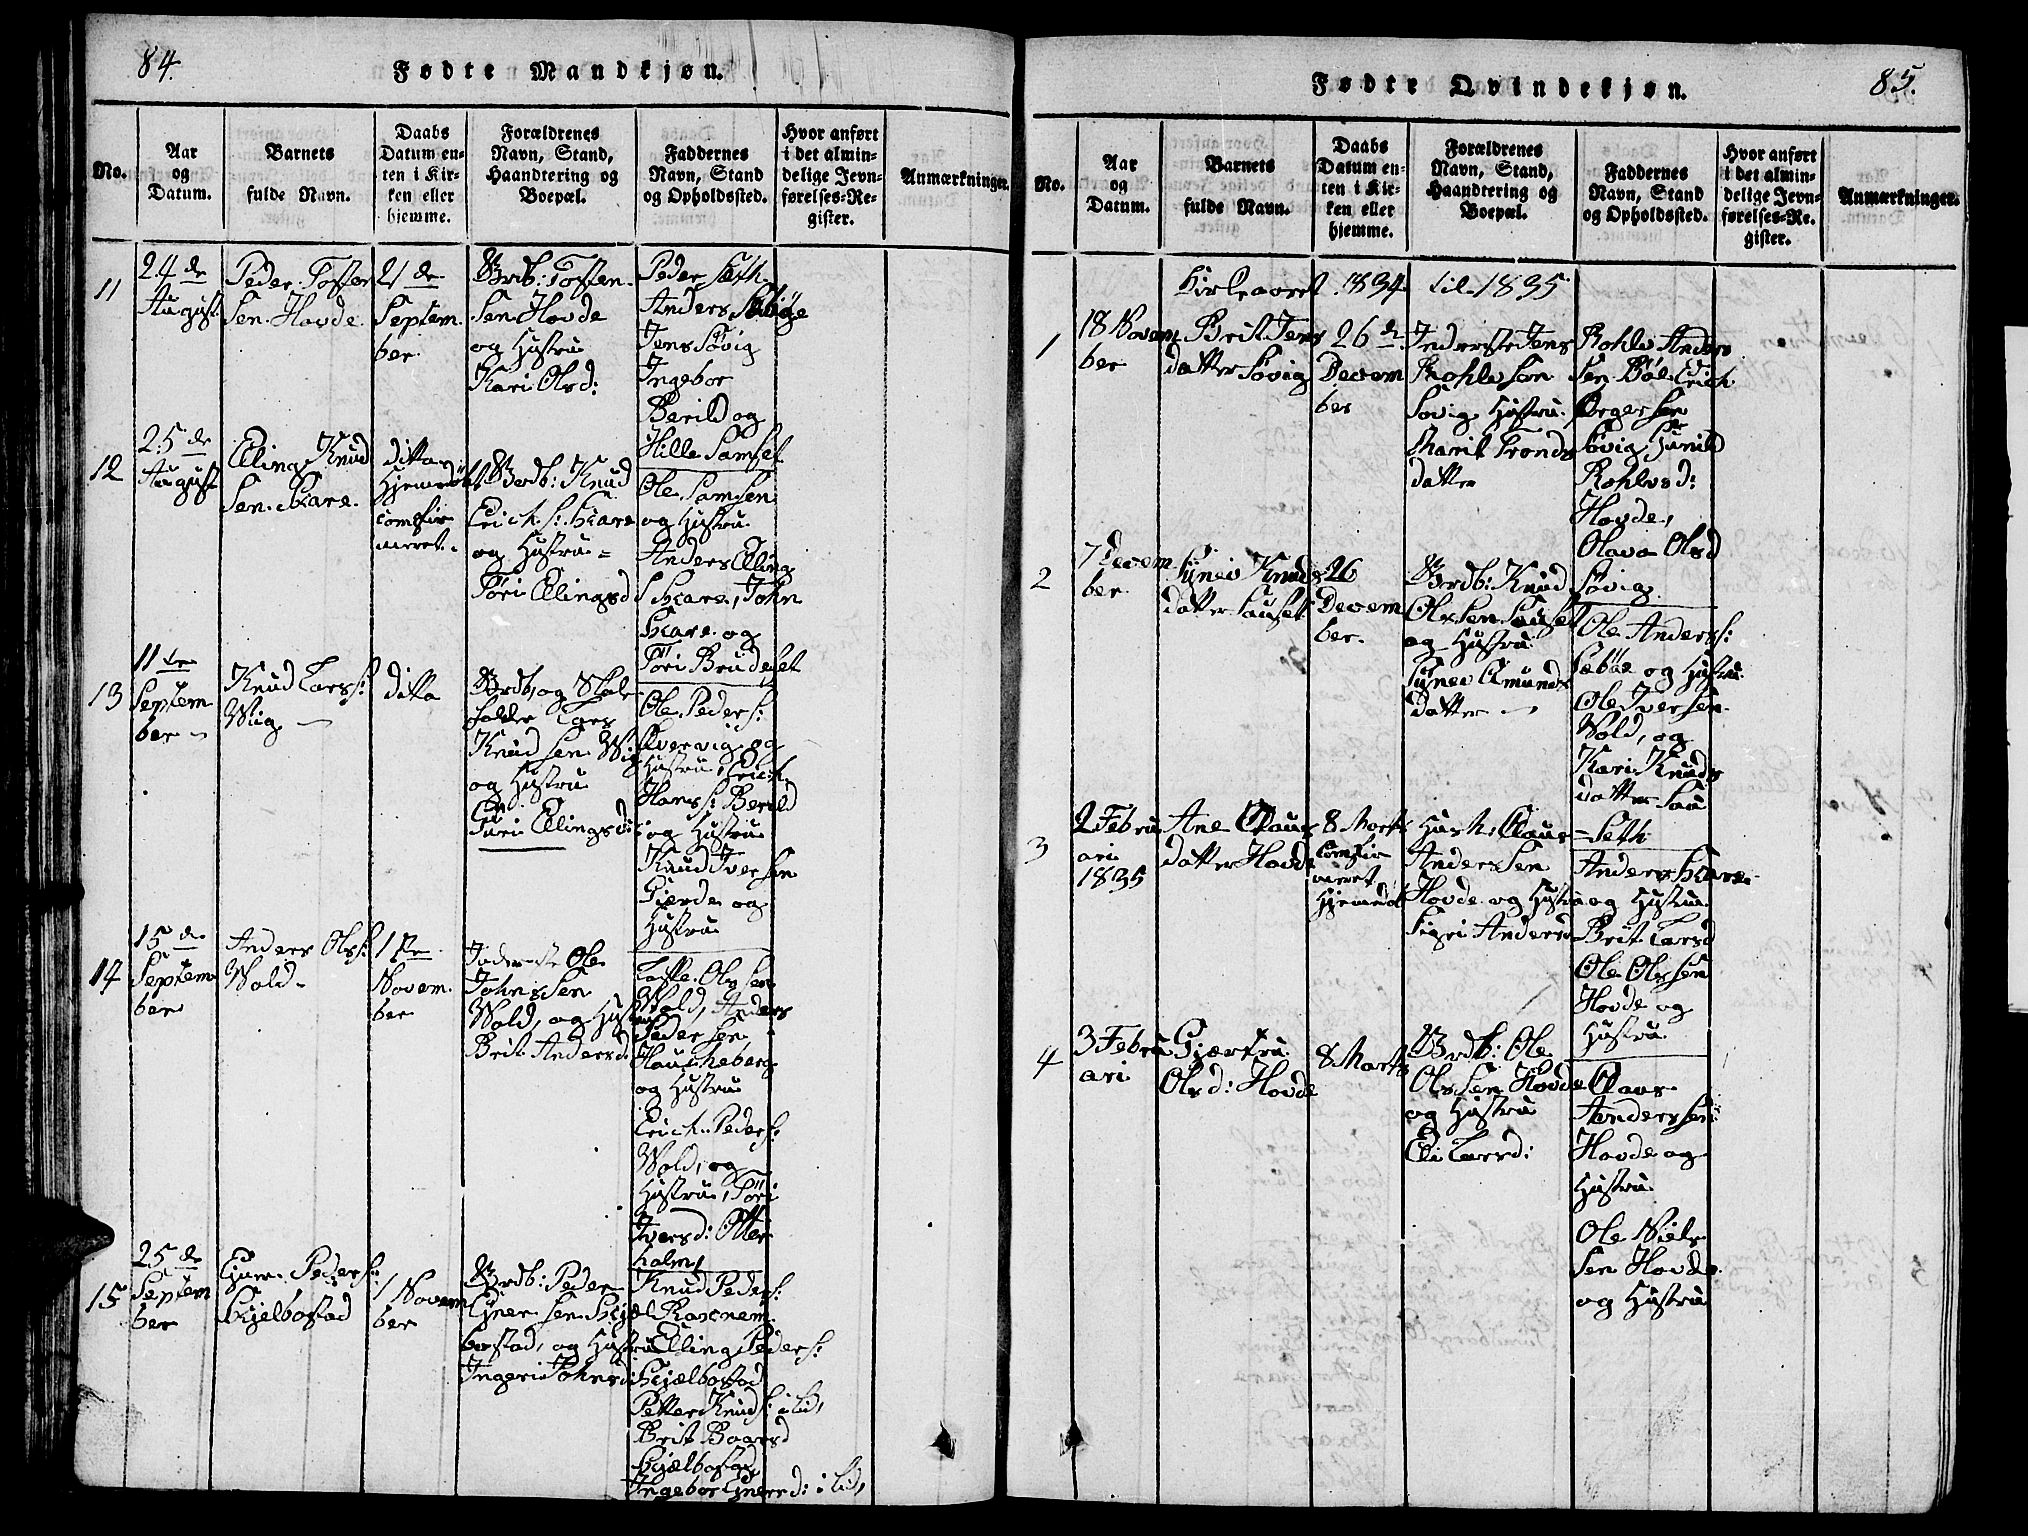 84.
Fødte Mandkjøn.
No.
Aar
og
Datum.
Barnets
fulde Navn.
Daabs
Datum en-
ten i Kir-
ken eller
hjemme.
Forældrenes
Navn, Stand,
Haandtering og
Boepæl.
Faddernes
Navn, Stand
og Opholdssted.
Hvor anført
i det almin-
delige Jevn-
førelses-Re-
gister.
Anmærkninger.
11
24 de
August
Peder Tosten
Sen Hovde
21 de
Septem
ber
Brdb: Tosten
Sen Hovde
og Hustru
Kari Olsd:
Peder Sæth
Anders Sæbøe
Jens Søvig
Ingebor
Berild og
Hille Samset
12
25 de
August
Elling Knud
Sen Skare
ditto
Hjemdøbt
comfir
meret
Brdb: Knud
Erich S: Skare
og Hustru
Tøri Ellingsd
Ole Samsen
og Hustru
Anders Elling
S Skare, John
Skare og
Tøri Brudeset
13
11 te
Septem
ber
Knud Lars S:
Wiig
ditto
Brdb, og Skole
holder Lars
Knud Sen Wiig
og Hustru
Turi Ellingsd:
Ole Peders:
Qvervig og
Hustru, Erich
Hans S: Berild
og Hustru
Knud Iversen
Gierde og
Hustru
14
15 de
Septem
ber
Anders Ols S:
Wold
1 ste
Novem
ber
Inderste Ole
Johns Sen
Wold, og Hustru
Brit Andersd:
Lasse Ols Sen
Wold, Anders
Peder Sen
Haucheberg
og Hustru
Erich Peders:
Wold, og
Hustru, Tøri
Iversd: Otter
holm
15
25 de
Septem
ber
Ejner Peders:
Skjelbostad
1 Novem
ber
Brdb: Peder
Ejner Sen Skjel
bostad, og Hustru
Ingeri Johnsd:
Knud Peders:
Ravnem
Elling Peders:
Skjælbostad
Petter Knud S: i Lid,
Brit Baarsd
Skjælbostad
Ingebor Ejnersd: i Lid,
85.
Fødte Qvindekjøn.
No.
Aar
og
Datum.
Barnets
fulde Navn.
Daabs
Datum en-
ten i Kir-
ken eller
hjemme.
Forældrenes
Navn, Stand,
Haandtering og
Boepæl.
Faddernes
Navn, Stand
og Opholdssted.
Hvor anført
i det almin-
delige Jevn-
førelses-Re-
gister.
Anmærkninger.
Kirkeaaret 1834 til 1835
1
18 Novem
ber
Brit Jens
datter Søvig
26 de
Decem
ber
Inderste Jens
Rohlv Søn
Søvig Hustru
Marit Tronds
datter
Rohlv Anders
Sen Bøe Erich
Arger Sen
Søvig Gunild
Rohlvsd:
Hovde,
Olava Olsd
Søvig
2
7 Decem
ber
Synev Knuds
datter Sauset
26
Decem
ber
Brdb: Knud
Ols Sen Sauset
og Hustru
Synev Amunds
datter
Ole Anders S:
Sæbøe og Hustru
Ole Iversen
Wold, og
Kari Knuds
datter Sau
Seth
3
2 Febru
ari
1835
Ane Claus
datter Hovde
8 Marts
comfir
meret
Hjemdøbt
Husm: Claus
Anders Sen
Hovde og Hustru
Sigri Andersd
Anders Skare
og Hustru
Brit Larsd
Ole Olssen
Hovde og
Hustru
4
3 Febru
ari
Gjertru
Olsd: Hovde
8 Marts
Brdb: Ole
Ols Sen Hovde
og Hustru
Eli Larsd:
Claus
Anderssen
Hovde og
Hustru
Ole Niels
Sen Hovde
og Hustru